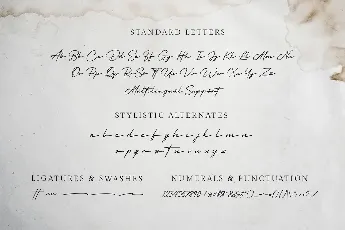 STANDARD LETTERS
Aa Bb Cc Dd Ee Ff Gg Hh Ii Jj Kk Ll Mm Nn
Oo Pp Qq Rr Ss Tt Uu Vv Ww Xx Yy Zz
Multilingual Support
STYLISTIC ALTERNATES
a b c d e f g h i j k l m n
o p q r s t u v w x y z
LIGATURES & SWASHES
NUMERALS & PUNCTUATION
1234567890